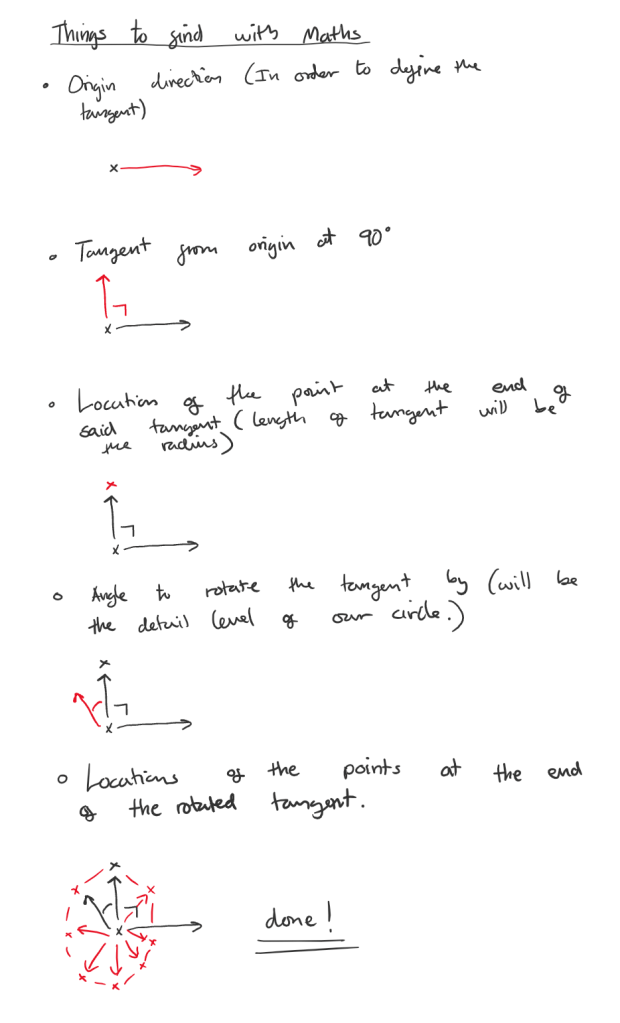 Things to find with Maths
• Origin direction (In order to define the
tangent)
• Tangent from origin at 90°
• Location of the point at the end of
said tangent (length of tangent will be
the radius)
• Angle to rotate the tangent by (will be
the detail level of our circle.)
• Locations of the points at the end
of the rotated tangent.
done!